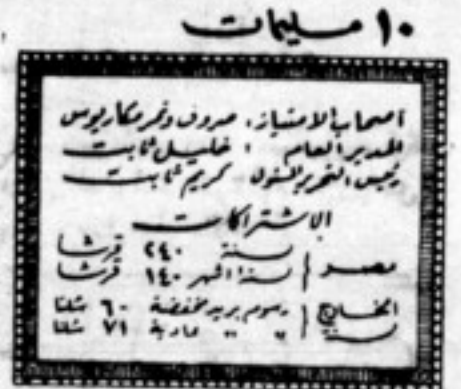 ١٠ مليمات
أصحاب الامتياز : صروف ونمر ومكاريوس
المدير العام : خليل ثابت
رئيس التحرير المسئول كريم ثابت
الاشتراكات
مصر { سنة ٢٤٠ قرشا
ستة اشهر ١٤٠ قرشا
الخارج سنة { رسوم بريد مخفضة ٦٠ شلنا
" " عادية ٧١ شلنا